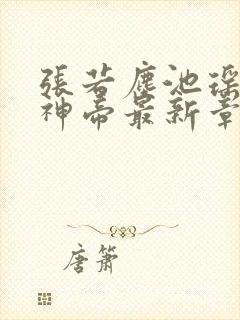 張若塵池瑤
神帝最新章
唐簫